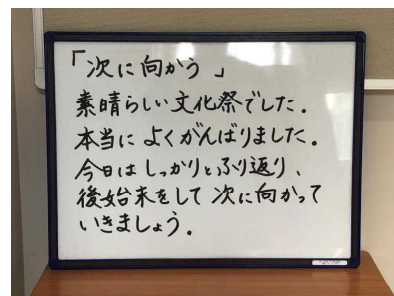 「次に向かう」
素晴らしい文化祭でした.
本当によくがんばりました.
今日はしっかりとふり返り、
後始末をして次に向かって
いきましょう.